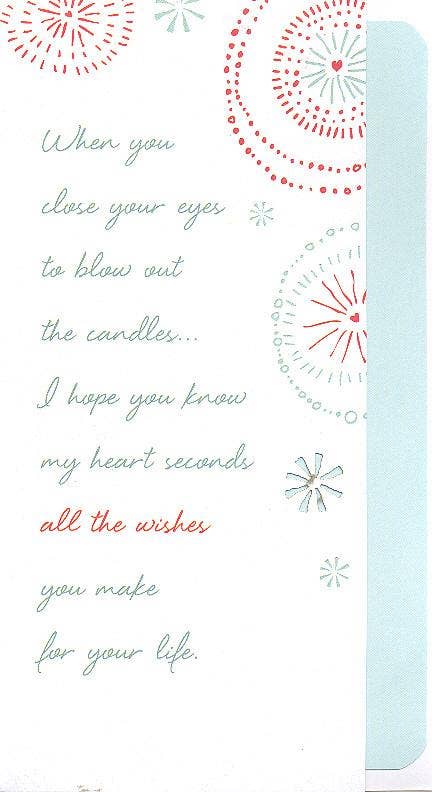 When you
close your eyes
to blow out
the candles...
I hope you know
my heart seconds
all the wishes
you make
for your life.